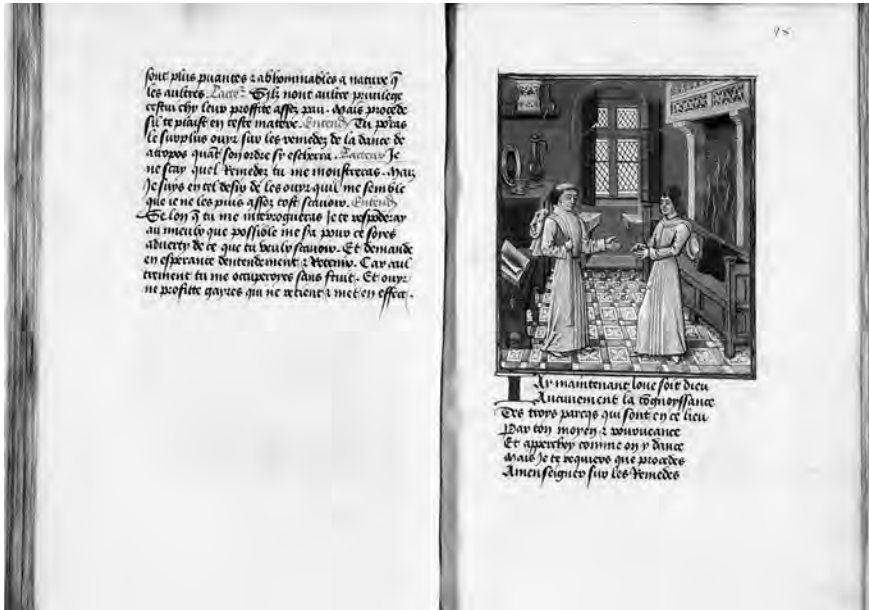 sont plus puantes & abhominables a nature q̄
les aultres. Lacteͬ. Silz nont aultre privilege
cestui chy leur proffite assez pau. Mais procede
sil te plaist en ceste matere. Entend Tu porͣs
le surplus ouyr sur les remedez de la dance de
atropos quāt son ordre sy escherra. Lacteur Je
ne scay quel Remedez tu me monstreras. Maiz
Je suys en tel desir de les ouyr quil me semble
que ie ne les puis assez tost scavoir. Entend
Selon q̄ tu me interrogueras Je te respōderay
au mieulx que possible me sera pour ce soyes
adverty de ce que tu veulx scavoir. Et demande
en esperance dentendement & Retenir. Car aul
trement tu me occuperoyes sans fruit. Et ouyr
ne proffite gayres qui ne retient & met en effect.
98
IAy maintenant loue soit dieu
Aucunement la cōgnoyssance
Des troys parcqs qui sont en ce lieu
Par ton moyen & pourveance
Et apperchoy comme on y dance
Mais Je te requiers que procedes
A menseigner sur les Remedes